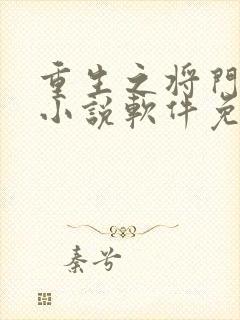 重生之将門
小説軟件免
秦兮